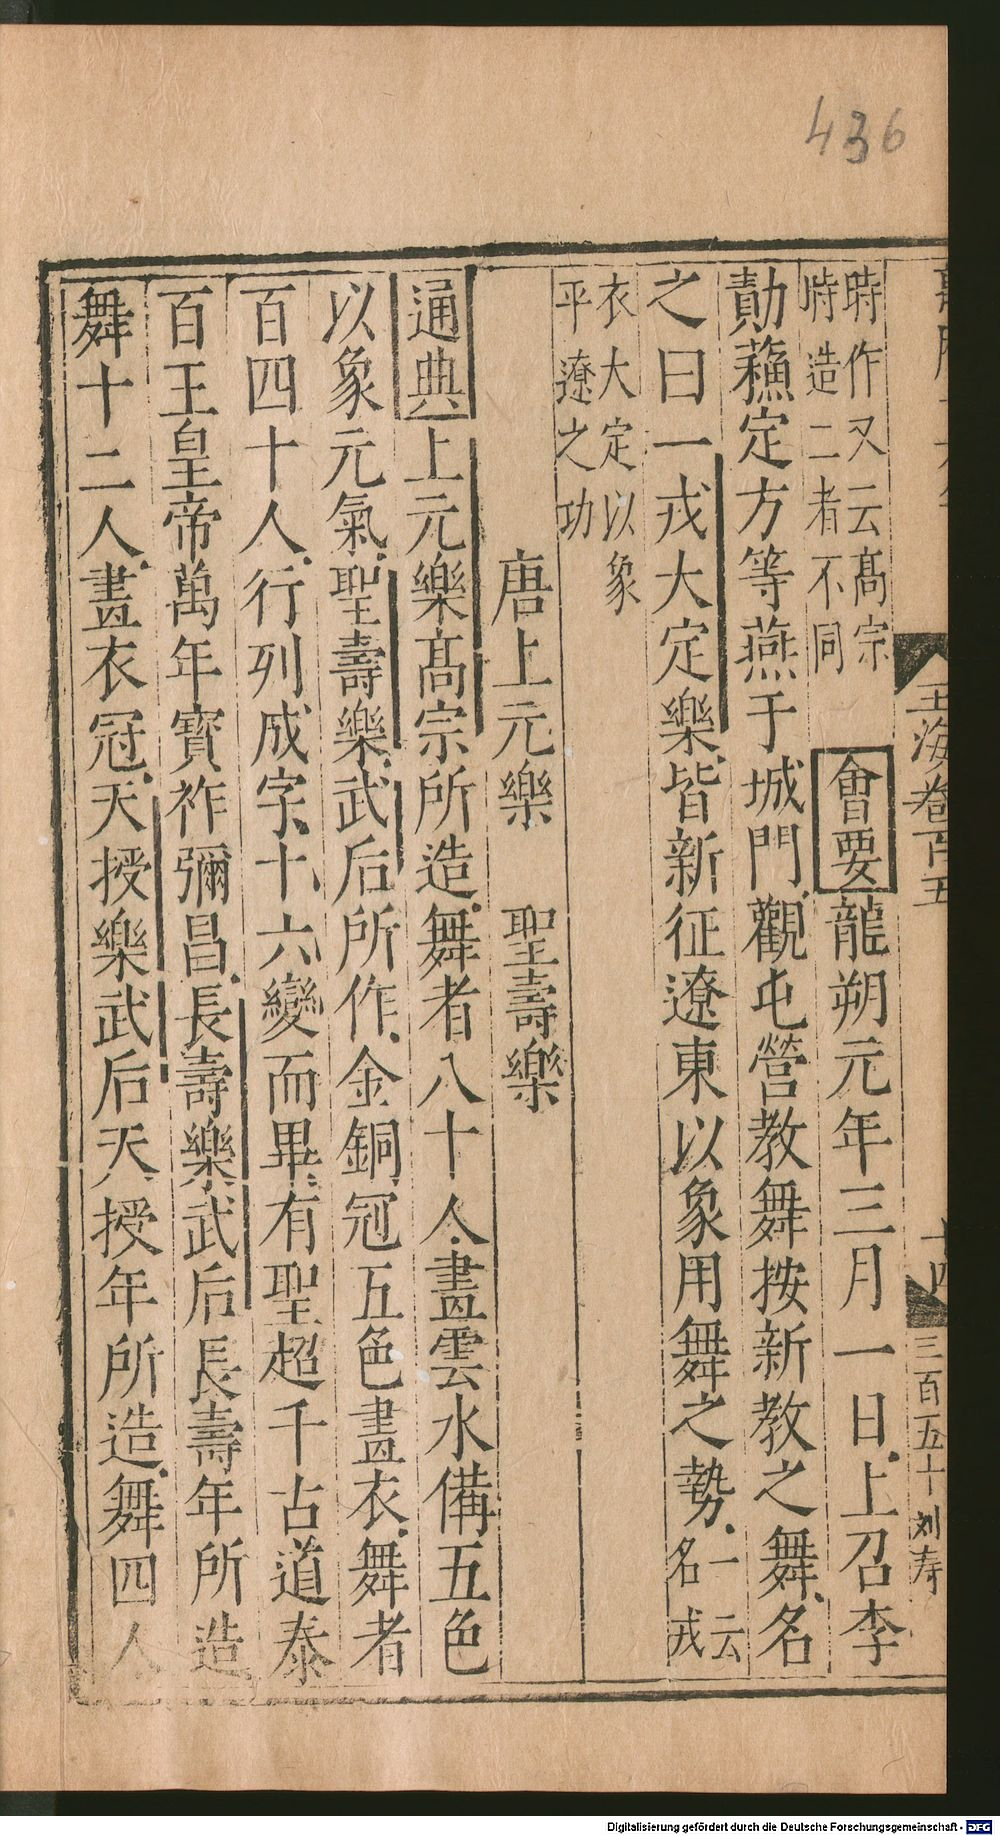 436
玉海卷百五
十四
三百五十
刘寿
時作又云髙宗
時造二者不同
會要龍朔元年三月一日上召李
勣蘓定方等燕于城門觀屯營教舞按新教之舞名
之曰一戎大定樂皆新征遼東以象用舞之勢
一云
名戎
衣大定以象
平遼之功
唐上元樂 聖壽樂
通典上元樂髙宗所造舞者八十人畫雲水備五色
以象元氣聖壽樂武后所作金銅冠五色畫衣舞者
百四十人行列成字十六變而畢有聖超千古道泰
百王皇帝萬年寳祚彌昌長壽樂武后長壽年所造
舞十二人畫衣冠天授樂武后天授年所造舞四人
Digitalisierung gefördert durch die Deutsche Forschungsgemeinschaft - DFG